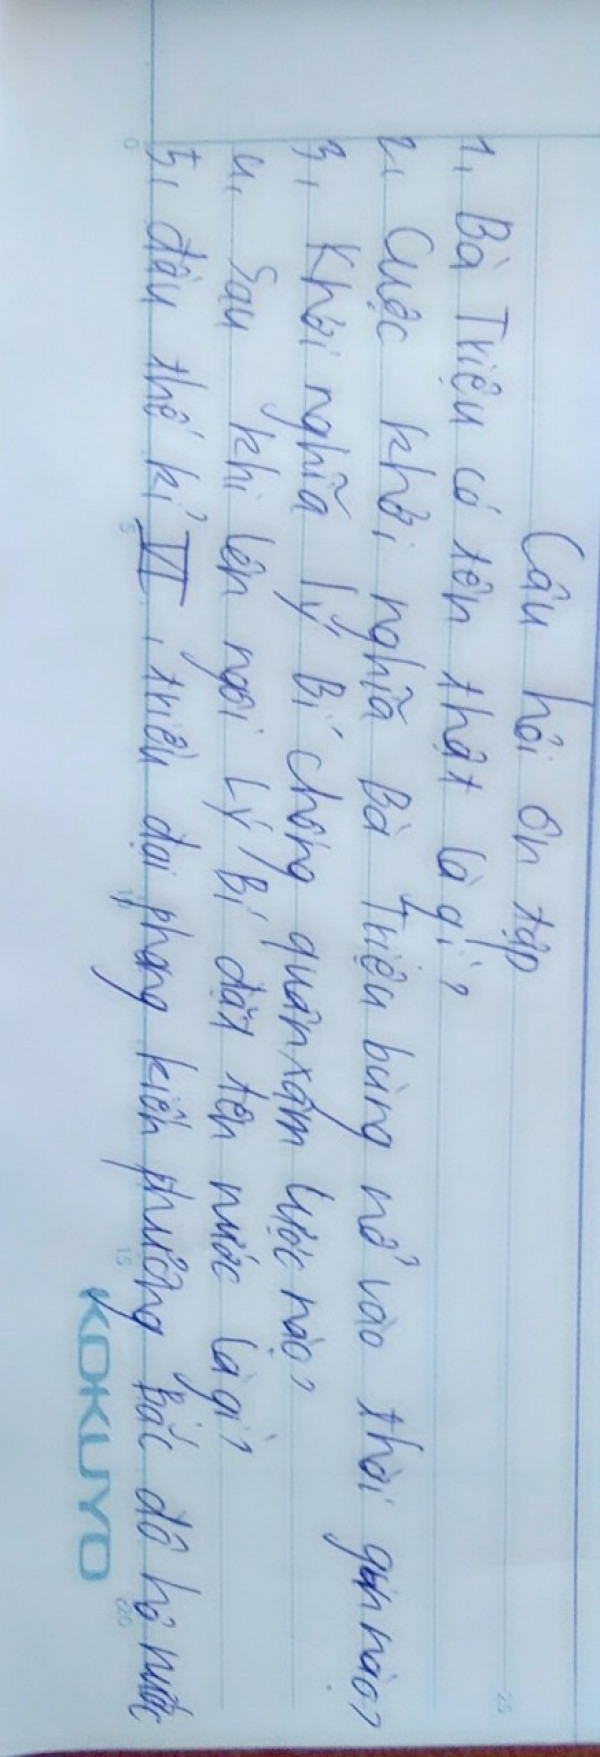 Câu hỏi ôn tập
1, Bà Triệu có tên thật là gì?
2, Cuộc khởi nghĩa Bà Triệu bùng nổ vào thời gian nào?
3, Khởi nghĩa Lý Bí chống quân xâm lược nào?
4, Sau khi lên ngôi Lý Bí đặt tên nước là gì?
5, đầu thế kỉ VI, triều đại phong kiến phương Bắc đô hộ nước
KOKUYO
0 5 10 15 20 25